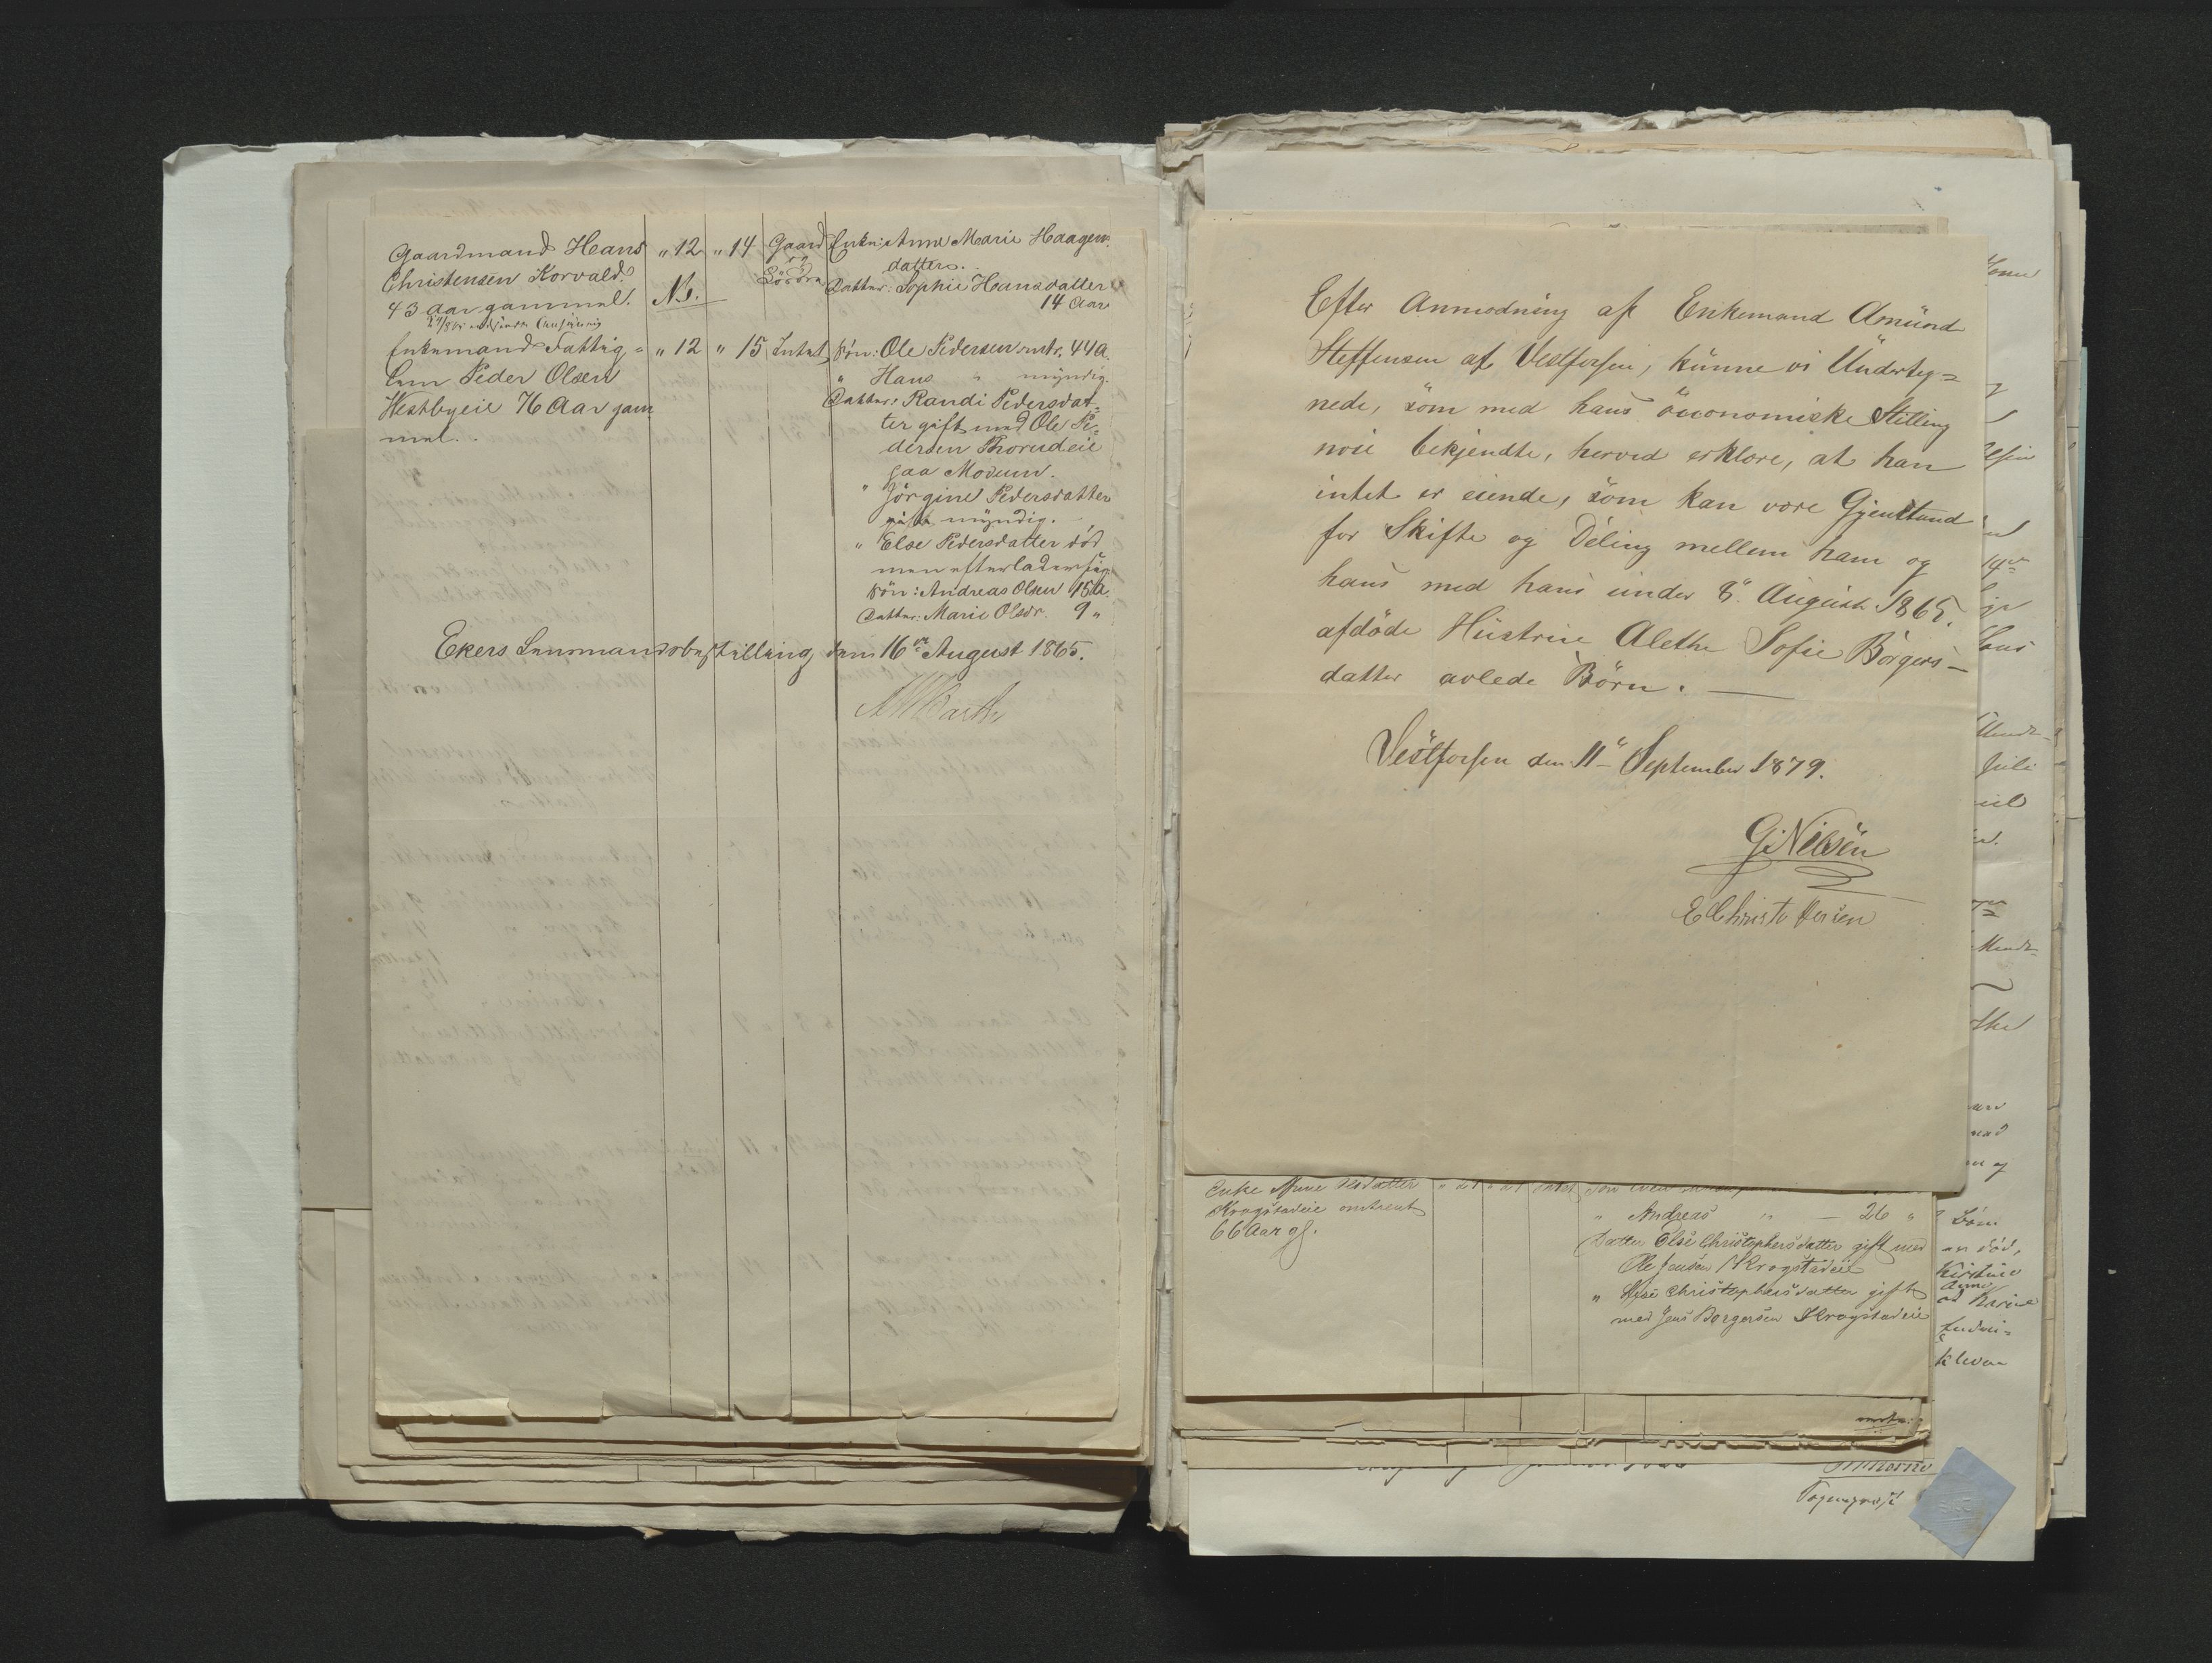 Gaardmand Hans " 12 " 14 Gaard Enke: Anne Marie Haagens-
Christensen Korvald og datter.
43 aar gammel. No. Lösöre Datter: Sophie Hansdatter
14 Aar
Enkemand Fattig= " 12 " 15 Intet Sön: Ole Pedersen omtr. 44 A.
lem Peder Olsen " Hans " myndig.
Westbyeie 76 Aar gam Datter: Randi Pedersdat=
mel. ter gift med Ole Pe=
dersen Thorudeie
paa Modum.
" Jörgine Pedersdatter
gift myndig.
" Else Pedersdatter död
men efterlader sig
Sön: Andreas Olsen 15 A.
Datter: Marie Olsdr. 9 "
Ekers Lensmandsbestilling den 16de August 1865.
Efter Anmodning af Enkemand Amund
Steffensen af Vestfossen, kunne vi Underteg=
nede, som med hans öconomiske Stilling
nöie bekjendte, herved erklære, at han
intet er eiende, som kan være Gjenstand
for Skifte og Deling mellem ham og
hans med hans under 8de August 1865.
afdöde Hustrue Alethe Sofie Börgers-
datter avlede Börn. —
Vestfossen den 11te September 1879.
G. Nilsen
E Christophersen
Enke Anne Olsdatter " 21 " 21 Intet
Krogstadeie omtrent " Andreas " — 26 "
66 Aar gl.
Datter Else Christophersdatter gift med
Ole Jensen Krogstadeie
" Christophersdatter gift
med Jens Borgersen Krogstadeie